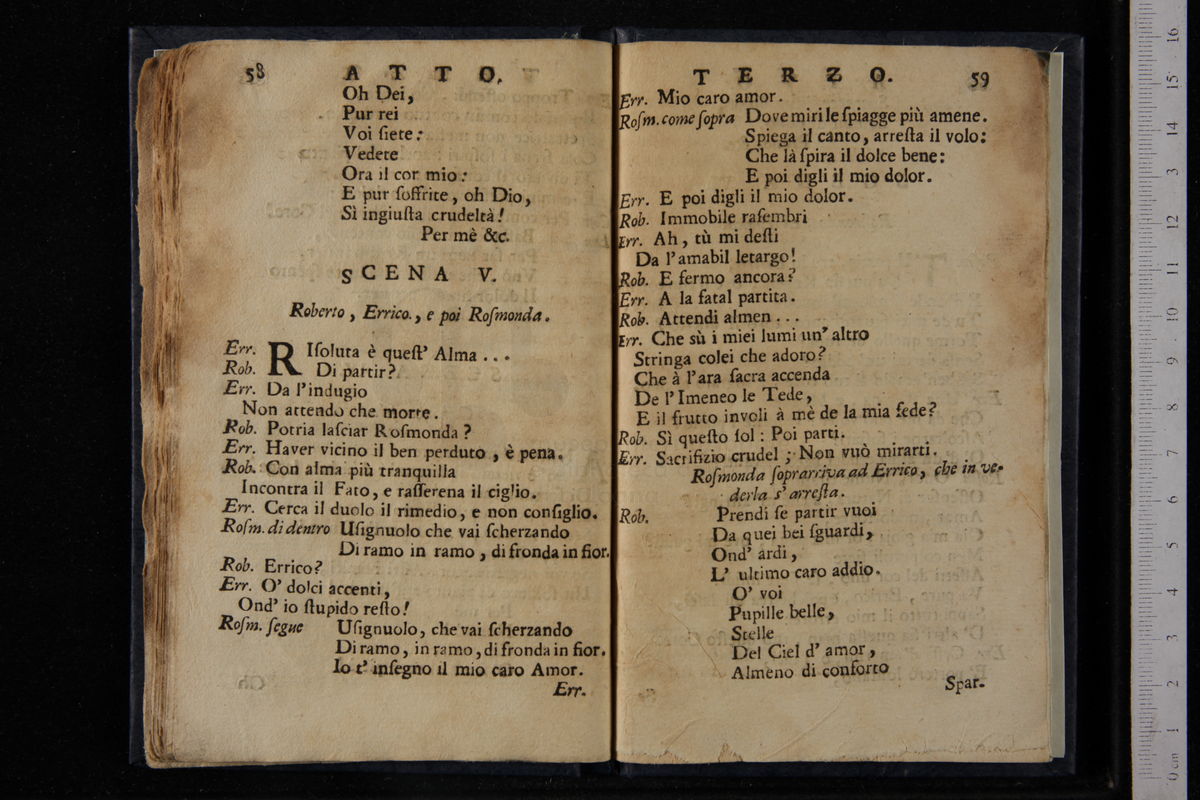 58 ATTO.
Oh Dei,
Pur rei
Voi ſiete:
Vedete
Ora il cor mio:
E pur ſoffrite, oh Dio,
Sì ingiuſta crudeltà!
Per mè &c.
SCENA V.
Roberto, Errico., e poi Roſmonda.
Err. RIſoluta è queſt' Alma . . .
Rob. Di partir?
Err. Da l'indugio
Non attendo che morte.
Rob. Potria laſciar Roſmonda?
Err. Haver vicino il ben perduto, è pena.
Rob. Con alma più tranquilla
Incontra il Fato, e raſſerena il ciglio.
Err. Cerca il duolo il rimedio, e non conſiglio.
Roſm. di dentro Uſignuolo che vai ſcherzando
Di ramo in ramo, di fronda in fior.
Rob. Errico?
Err. O' dolci accenti,
Ond' io ſtupido reſto!
Roſm. ſegue Uſignuolo, che vai ſcherzando
Di ramo, in ramo, di fronda in fior.
Io t' inſegno il mio caro Amor.
Err.
TERZO. 59
Err. Mio caro amor.
Roſm. come ſopra Dove miri le ſpiagge più amene.
Spiega il canto, arreſta il volo:
Che là ſpira il dolce bene:
E poi digli il mio dolor.
Err. E poi digli il mio dolor.
Rob. Immobile raſembri
Err. Ah, tù mi deſti
Da l'amabil letargo!
Rob. E fermo ancora?
Err. A la fatal partita.
Rob. Attendi almen . . .
Err. Che sù i miei lumi un' altro
Stringa colei che adoro?
Che à l'ara ſacra accenda
De l'Imeneo le Tede,
E il frutto involi à mè de la mia fede?
Rob. Sì queſto ſol: Poi parti.
Err. Sacrifizio crudel; Non vuò mirarti.
Roſmonda ſoprarriva ad Errico, che in ve-
derla s' arreſta.
Rob. Prendi ſe partir vuoi
Da quei bei ſguardi,
Ond' ardi,
L' ultimo caro addio.
O' voi
Pupille belle,
Stelle
Del Ciel d' amor,
Almeno di conforto
Spar-
0 cm 1 2 3 4 5 6 7 8 9 10 11 12 13 14 15 16